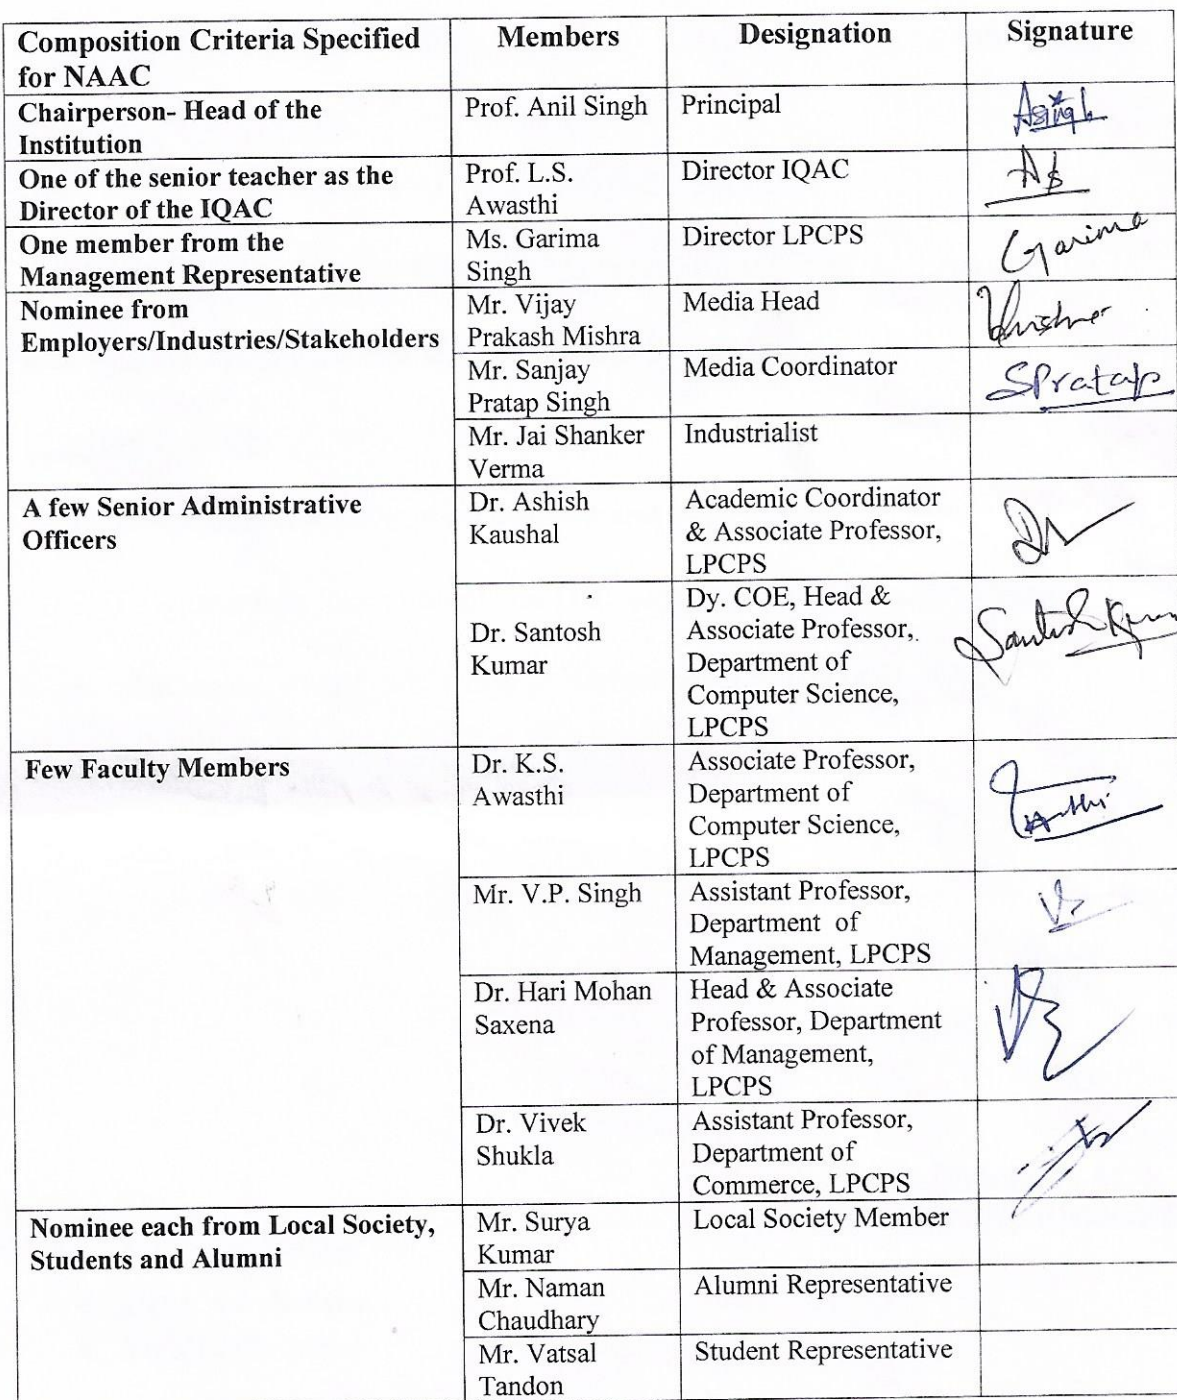 Composition Criteria Specified
for NAAC
Members
Designation
Signature
Chairperson- Head of the
Institution
Prof. Anil Singh
Principal
One of the senior teacher as the
Director of the IQAC
Prof. L.S.
Awasthi
Director IQAC
One member from the
Management Representative
Ms. Garima
Singh
Director LPCPS
Garima
Nominee from
Employers/Industries/Stakeholders
Mr. Vijay
Prakash Mishra
Media Head
Mr. Sanjay
Pratap Singh
Media Coordinator
SPratap
Mr. Jai Shanker
Verma
Industrialist
A few Senior Administrative
Officers
Dr. Ashish
Kaushal
Academic Coordinator
& Associate Professor,
LPCPS
Dr. Santosh
Kumar
Dy. COE, Head &
Associate Professor,
Department of
Computer Science,
LPCPS
Few Faculty Members
Dr. K.S.
Awasthi
Associate Professor,
Department of
Computer Science,
LPCPS
Mr. V.P. Singh
Assistant Professor,
Department of
Management, LPCPS
Dr. Hari Mohan
Saxena
Head & Associate
Professor, Department
of Management,
LPCPS
Dr. Vivek
Shukla
Assistant Professor,
Department of
Commerce, LPCPS
Nominee each from Local Society,
Students and Alumni
Mr. Surya
Kumar
Local Society Member
Mr. Naman
Chaudhary
Alumni Representative
Mr. Vatsal
Tandon
Student Representative